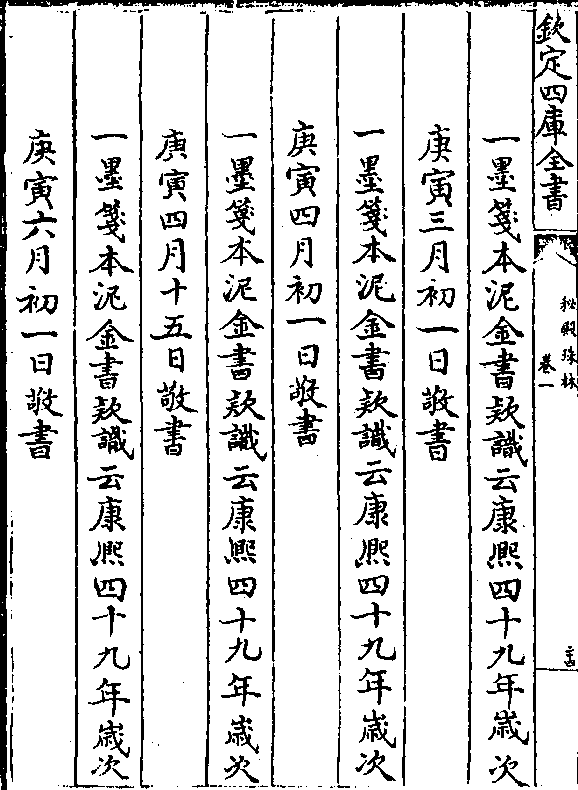 欽定四庫全書
秘殿珠林
卷一
一墨箋本泥金書款識云康熙四十九年歲次
庚寅三月初一日敬書
一墨箋本泥金書款識云康熙四十九年歲次
庚寅四月初一日敬書
一墨箋本泥金書款識云康熙四十九年歲次
庚寅四月十五日敬書
一墨箋本泥金書款識云康熙四十九年歲次
庚寅六月初一日敬書